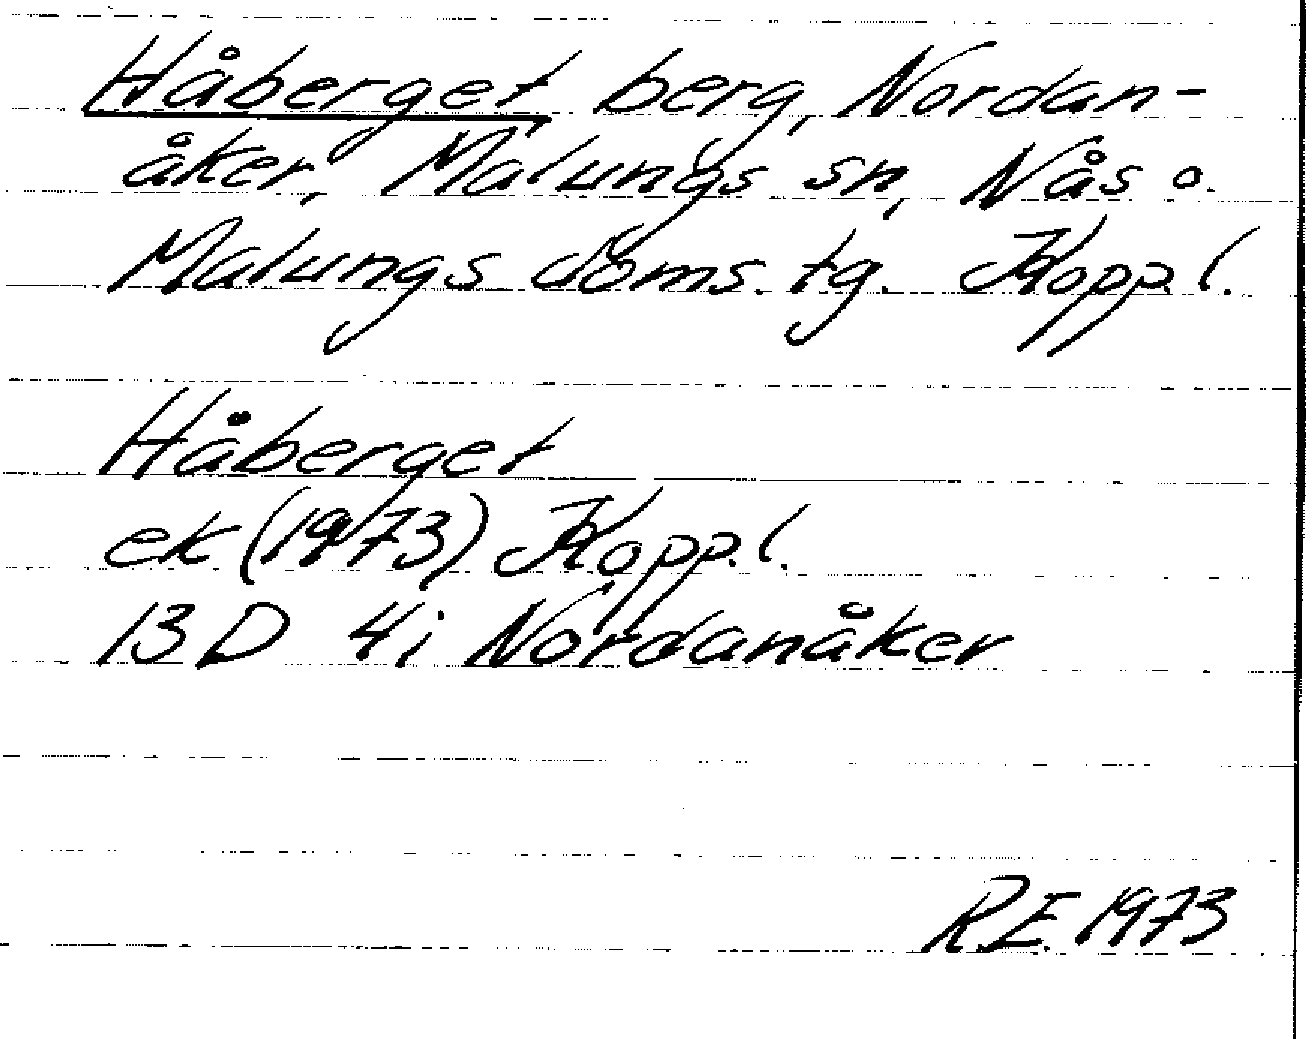 Håberget, berg, Nordan-
åker, Malungs sn, Nås o.
Malungs doms. tg. Kopp.l.
Håberget
ek (1973) Kopp.l.
13D 4i Nordanåker
R.E. 1973